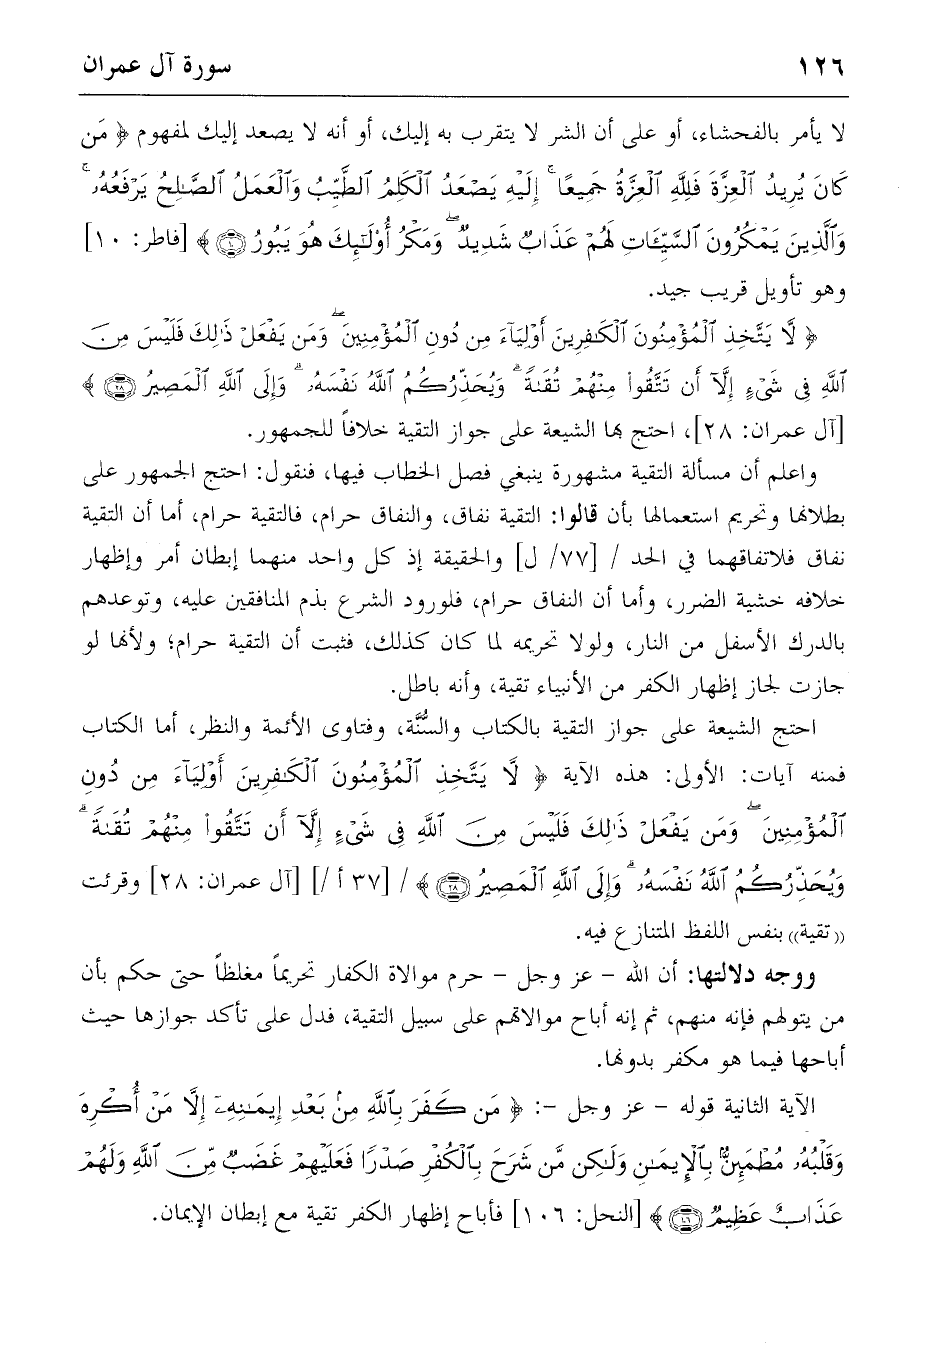 ١٢٦ سورة آل عمران
لا يأمر بالفحشاء، أو على أن الشر لا يتقرب به إليك، أو أنه لا يصعد إليك لمفهوم ﴿ مَن
كَانَ يُرِيدُ ٱلْعِزَّةَ فَلِلَّهِ ٱلْعِزَّةُ جَمِيعًا ۚ إِلَيْهِ يَصْعَدُ ٱلْكَلِمُ ٱلطَّيِّبُ وَٱلْعَمَلُ ٱلصَّـٰلِحُ يَرْفَعُهُۥ ۚ
وَٱلَّذِينَ يَمْكُرُونَ ٱلسَّيِّـَٔاتِ لَهُمْ عَذَابٌ شَدِيدٌ ۖ وَمَكْرُ أُو۟لَـٰٓئِكَ هُوَ يَبُورُ ۝١٠ ﴾ [فاطر: ١٠]
وهو تأويل قريب جيد.
﴿ لَّا يَتَّخِذِ ٱلْمُؤْمِنُونَ ٱلْكَـٰفِرِينَ أَوْلِيَآءَ مِن دُونِ ٱلْمُؤْمِنِينَ ۖ وَمَن يَفْعَلْ ذَٰلِكَ فَلَيْسَ مِنَ
ٱللَّهِ فِى شَىْءٍ إِلَّآ أَن تَتَّقُوا۟ مِنْهُمْ تُقَىٰةً ۗ وَيُحَذِّرُكُمُ ٱللَّهُ نَفْسَهُۥ ۗ وَإِلَى ٱللَّهِ ٱلْمَصِيرُ ۝٢٨ ﴾
[آل عمران: ٢٨]، احتج بها الشيعة على جواز التقية خلافاً للجمهور.
واعلم أن مسألة التقية مشهورة ينبغي فصل الخطاب فيها، فنقول: احتج الجمهور على
بطلانها وتحريم استعمالها بأن قالوا: التقية نفاق، والنفاق حرام، فالتقية حرام، أما أن التقية
نفاق فلاتفاقهما في الحد / [٧٧/ ل] والحقيقة إذ كل واحد منهما إبطان أمر وإظهار
خلافه خشية الضرر، وأما أن النفاق حرام، فلورود الشرع بذم المنافقين عليه، وتوعدهم
بالدرك الأسفل من النار، ولولا تحريمه لما كان كذلك، فثبت أن التقية حرام؛ ولأنها لو
جازت لجاز إظهار الكفر من الأنبياء تقية، وأنه باطل.
احتج الشيعة على جواز التقية بالكتاب والسُّنَّة، وفتاوى الأئمة والنظر، أما الكتاب
فمنه آيات: الأولى: هذه الآية ﴿ لَّا يَتَّخِذِ ٱلْمُؤْمِنُونَ ٱلْكَـٰفِرِينَ أَوْلِيَآءَ مِن دُونِ
ٱلْمُؤْمِنِينَ ۖ وَمَن يَفْعَلْ ذَٰلِكَ فَلَيْسَ مِنَ ٱللَّهِ فِى شَىْءٍ إِلَّآ أَن تَتَّقُوا۟ مِنْهُمْ تُقَىٰةً ۗ
وَيُحَذِّرُكُمُ ٱللَّهُ نَفْسَهُۥ ۗ وَإِلَى ٱللَّهِ ٱلْمَصِيرُ ۝٢٨ ﴾ / [٣٧ أ /] [آل عمران: ٢٨] وقرئت
((تقية)) بنفس اللفظ المتنازع فيه.
ووجه دلالتها: أن الله – عز وجل – حرم موالاة الكفار تحريماً مغلظاً حتى حكم بأن
من يتولهم فإنه منهم، ثم إنه أباح موالاتهم على سبيل التقية، فدل على تأكد جوازها حيث
أباحها فيما هو مكفر بدونها.
الآية الثانية قوله – عز وجل –: ﴿ مَن كَفَرَ بِٱللَّهِ مِنۢ بَعْدِ إِيمَـٰنِهِۦٓ إِلَّا مَنْ أُكْرِهَ
وَقَلْبُهُۥ مُطْمَئِنٌّۢ بِٱلْإِيمَـٰنِ وَلَـٰكِن مَّن شَرَحَ بِٱلْكُفْرِ صَدْرًا فَعَلَيْهِمْ غَضَبٌ مِّنَ ٱللَّهِ وَلَهُمْ
عَذَابٌ عَظِيمٌ ۝١٠٦ ﴾ [النحل: ١٠٦] فأباح إظهار الكفر تقية مع إبطان الإيمان.